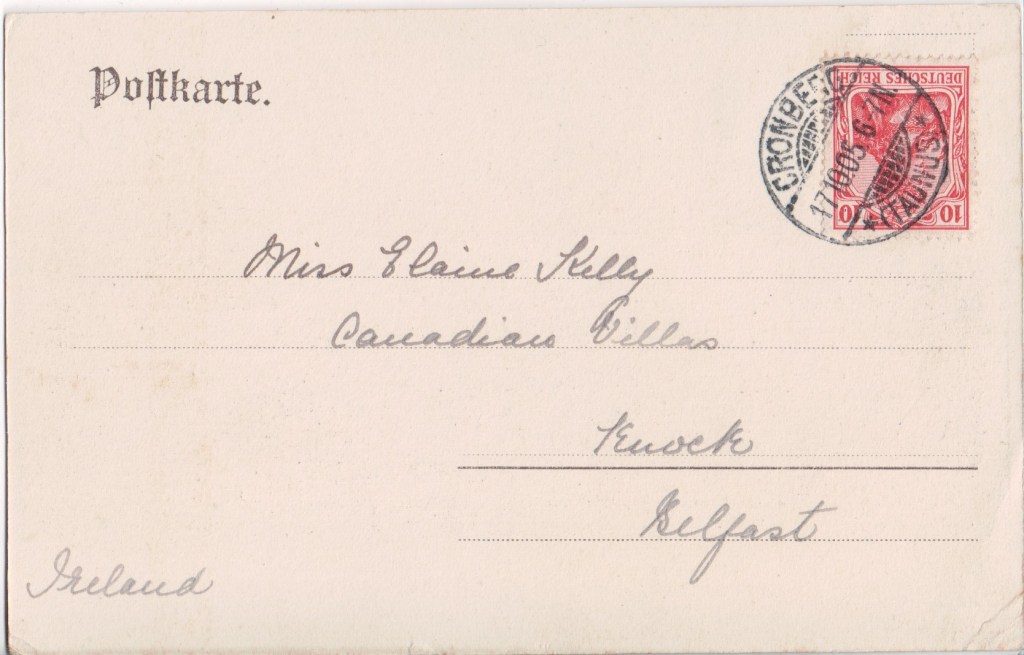 Postkarte.
DEUTSCHES REICH
10 10
CRONBERG
17.10.05. 6-7N
*(TAUNUS)*
Miss Elaine Kelly
Canadian Villas
Knock
Belfast
Ireland